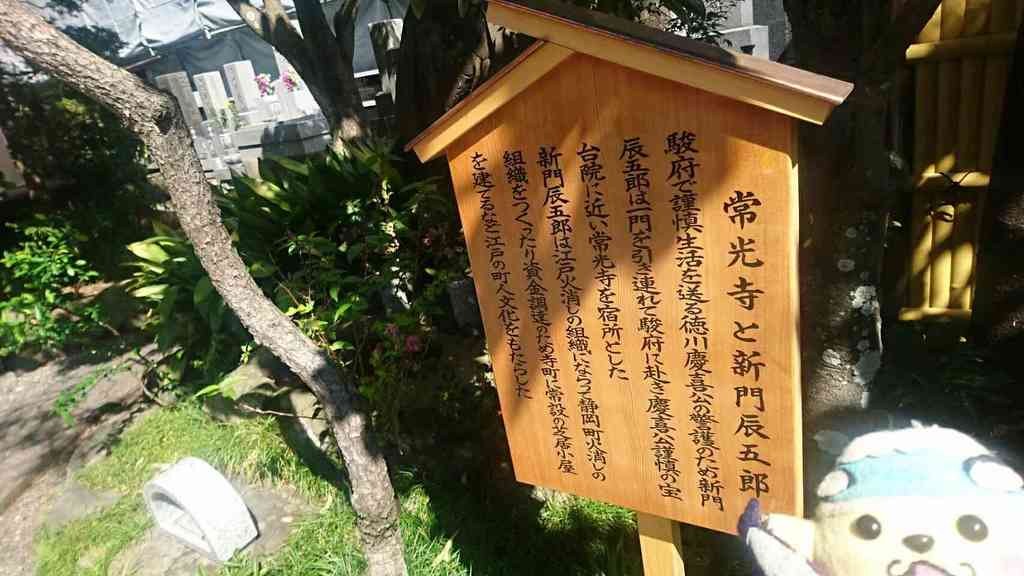 常光寺と新門辰五郎
駿府で謹慎生活を送る徳川慶喜公の警護のため新門
辰五郎は一門を引き連れて駿府に赴き慶喜公謹慎の宝
台院に近い常光寺を宿所とした
新門辰五郎は江戸火消しの組織にならって静岡町火消しの
組織をつくったり資金調達のため寺町に常設の芝居小屋
を建てるなど江戸の町人文化をもたらした